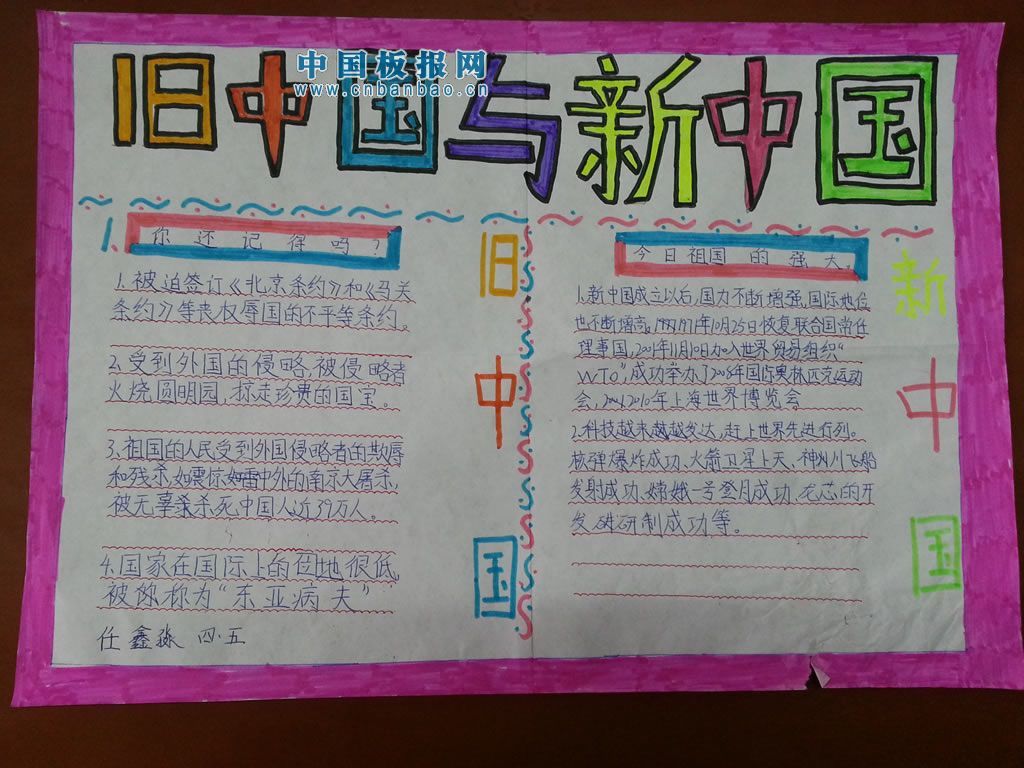 中国板报网
www.cnbanbao.cn
旧中国与新中国
1.
你还记得吗?
1.被迫签订《北京条约》和《马关
条约》等丧权辱国的不平等条约。
2.受到外国的侵略,被侵略者
火烧圆明园,掠走珍贵的国宝。
3.祖国的人民受到外国侵略者的欺辱
和残杀,如震惊中外的南京大屠杀,
被无辜杀死中国人近37万人。
4.国家在国际上的位地很低,
被你称为“东亚病夫”
任鑫淼 四·五
旧中国
今日祖国的强大。
1.新中国成立以后,国力不断增强,国际地位
也不断增高。1971年10月25日恢复联合国常任
理事国,2001年11月10日加入世界贸易组织“
WTO”,成功举办了2008年国际奥林匹克运动
会,2010年上海世界博览会
2.科技越来越发达,赶上世界先进行列。
核弹爆炸成功、火箭卫星上天、神州飞船
发射成功、嫦娥一号登月成功、龙芯的开
发研制成功等。
新中国